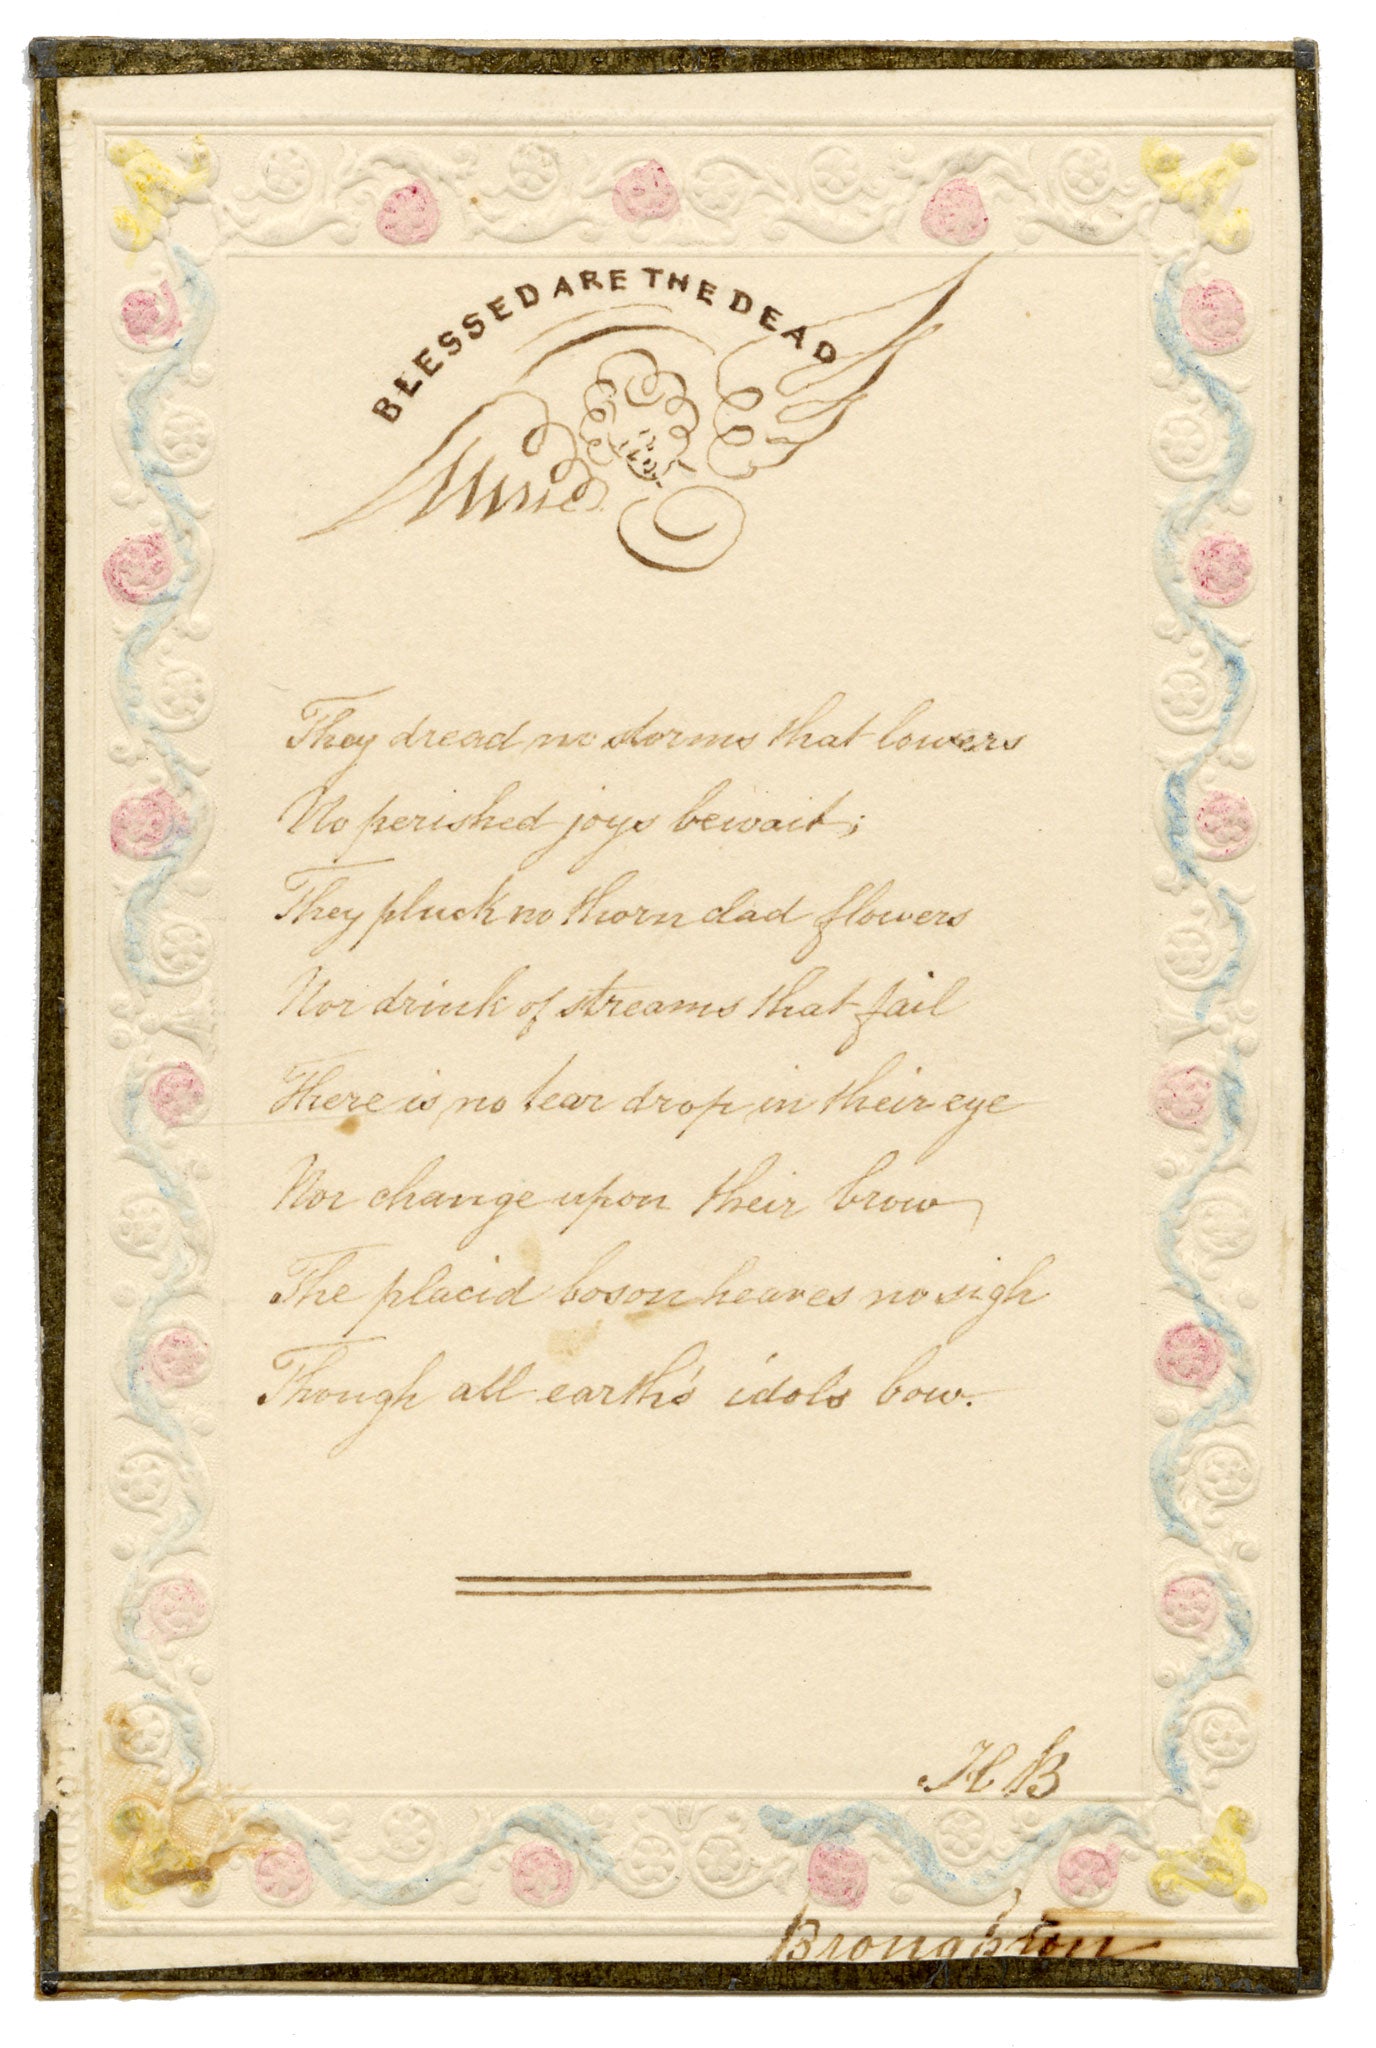 BLESSED ARE THE DEAD
They dread no storms that lowers
No perished joys bewait;
They pluck no thorn clad flowers
Nor drink of streams that fail
There is no tear drop in their eye
Nor change upon their brow
The placid boson heaves no sigh
Though all earth's idols bow.
H B
Broughton